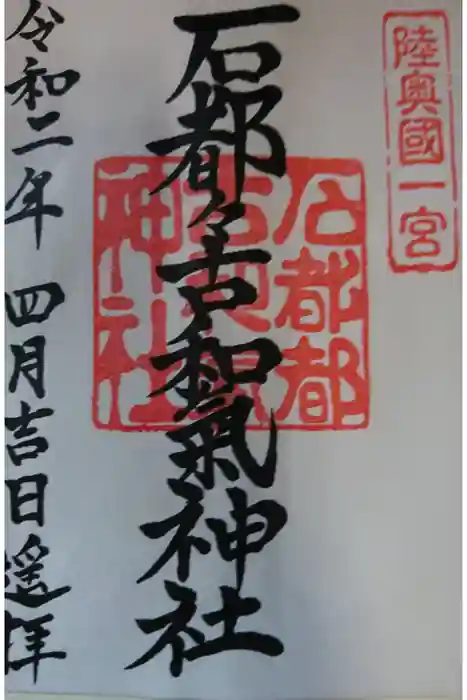 陸奥國一宮
石都々古和氣神社
石都都
古和氣
神社
令和二年 四月吉日遥拝